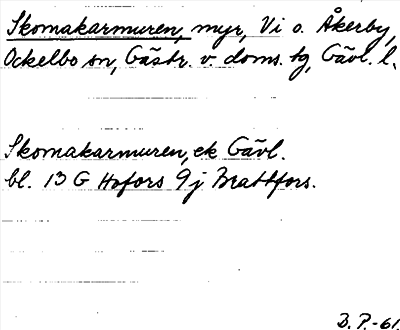 Skomakarmuren, myr, Vi o. Åkerby,
Ockelbo sn, Gästr. v. doms. tg, Gävl. l.
Skomakarmuren, ek Gävl.
bl. 13 G Hofors 9j Brattfors.
B. P.-61